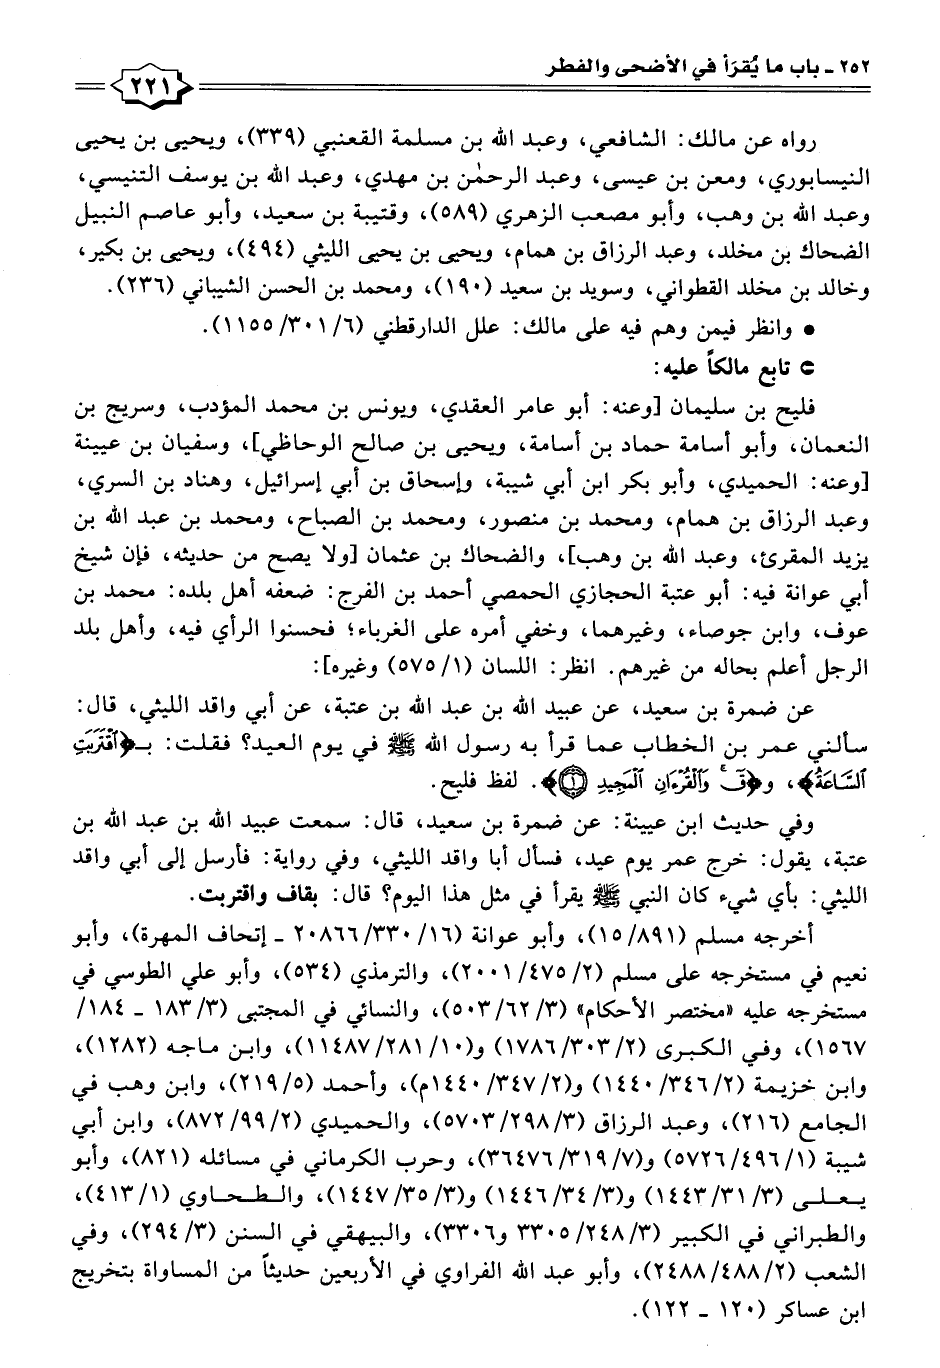 ٢٥٢ - باب ما يُقرَأ في الأضحى والفطر
٢٢١
رواه عن مالك: الشافعي، وعبد الله بن مسلمة القعنبي (٣٣٩)، ويحيى بن يحيى
النيسابوري، ومعن بن عيسى، وعبد الرحمٰن بن مهدي، وعبد الله بن يوسف التنيسي،
وعبد الله بن وهب، وأبو مصعب الزهري (٥٨٩)، وقتيبة بن سعيد، وأبو عاصم النبيل
الضحاك بن مخلد، وعبد الرزاق بن همام، ويحيى بن يحيى الليثي (٤٩٤)، ويحيى بن بكير،
وخالد بن مخلد القطواني، وسويد بن سعيد (١٩٠)، ومحمد بن الحسن الشيباني (٢٣٦).
• وانظر فيمن وهم فيه على مالك: علل الدارقطني (٦/ ٣٠١/ ١١٥٥).
تابع مالكاً عليه:
فليح بن سليمان [وعنه: أبو عامر العقدي، ويونس بن محمد المؤدب، وسريج بن
النعمان، وأبو أسامة حماد بن أسامة، ويحيى بن صالح الوحاظي]، وسفيان بن عيينة
[وعنه: الحميدي، وأبو بكر ابن أبي شيبة، وإسحاق بن أبي إسرائيل، وهناد بن السري،
وعبد الرزاق بن همام، ومحمد بن منصور، ومحمد بن الصباح، ومحمد بن عبد الله بن
يزيد المقرئ، وعبد الله بن وهب]، والضحاك بن عثمان [ولا يصح من حديثه، فإن شيخ
أبي عوانة فيه: أبو عتبة الحجازي الحمصي أحمد بن الفرج: ضعفه أهل بلده: محمد بن
عوف، وابن جوصاء، وغيرهما، وخفي أمره على الغرباء؛ فحسنوا الرأي فيه، وأهل بلد
الرجل أعلم بحاله من غيرهم. انظر: اللسان (١/ ٥٧٥) وغيره]:
عن ضمرة بن سعيد، عن عبيد الله بن عبد الله بن عتبة، عن أبي واقد الليثي، قال:
سألني عمر بن الخطاب عما قرأ به رسول الله ﷺ في يوم العيد؟ فقلت: بـ﴿ٱقْتَرَبَتِ
ٱلسَّاعَةُ﴾، و﴿قٓ ۚ وَٱلْقُرْءَانِ ٱلْمَجِيدِ ۝١﴾. لفظ فليح.
وفي حديث ابن عيينة: عن ضمرة بن سعيد، قال: سمعت عبيد الله بن عبد الله بن
عتبة، يقول: خرج عمر يوم عيد، فسأل أبا واقد الليثي، وفي رواية: فأرسل إلى أبي واقد
الليثي: بأي شيء كان النبي ﷺ يقرأ في مثل هذا اليوم؟ قال: بقاف واقتربت.
أخرجه مسلم (٨٩١/ ١٥)، وأبو عوانة (١٦/ ٣٣٠/ ٢٠٨٦٦ - إتحاف المهرة)، وأبو
نعيم في مستخرجه على مسلم (٢/ ٤٧٥/ ٢٠٠١)، والترمذي (٥٣٤)، وأبو علي الطوسي في
مستخرجه عليه «مختصر الأحكام» (٣/ ٦٢/ ٥٠٣)، والنسائي في المجتبى (٣/ ١٨٣ - ١٨٤/
١٥٦٧)، وفي الكبرى (٢/ ٣٠٣/ ١٧٨٦) و(١٠/ ٢٨١/ ١١٤٨٧)، وابن ماجه (١٢٨٢)،
وابن خزيمة (٢/ ٣٤٦/ ١٤٤٠) و(٢/ ٣٤٧/ ١٤٤٠م)، وأحمد (٥/ ٢١٩)، وابن وهب في
الجامع (٢١٦)، وعبد الرزاق (٣/ ٢٩٨/ ٥٧٠٣)، والحميدي (٢/ ٩٩/ ٨٧٢)، وابن أبي
شيبة (١/ ٤٩٦/ ٥٧٢٦) و(٧/ ٣١٩/ ٣٦٤٧٦)، وحرب الكرماني في مسائله (٨٢١)، وأبو
يعلى (٣/ ٣١/ ١٤٤٣) و(٣/ ٣٤/ ١٤٤٦) و(٣/ ٣٥/ ١٤٤٧)، والطحاوي (١/ ٤١٣)،
والطبراني في الكبير (٣/ ٢٤٨/ ٣٣٠٥ و٣٣٠٦)، والبيهقي في السنن (٣/ ٢٩٤)، وفي
الشعب (٢/ ٤٨٨/ ٢٤٨٨)، وأبو عبد الله الفراوي في الأربعين حديثاً من المساواة بتخريج
ابن عساكر (١٢٠ - ١٢٢).